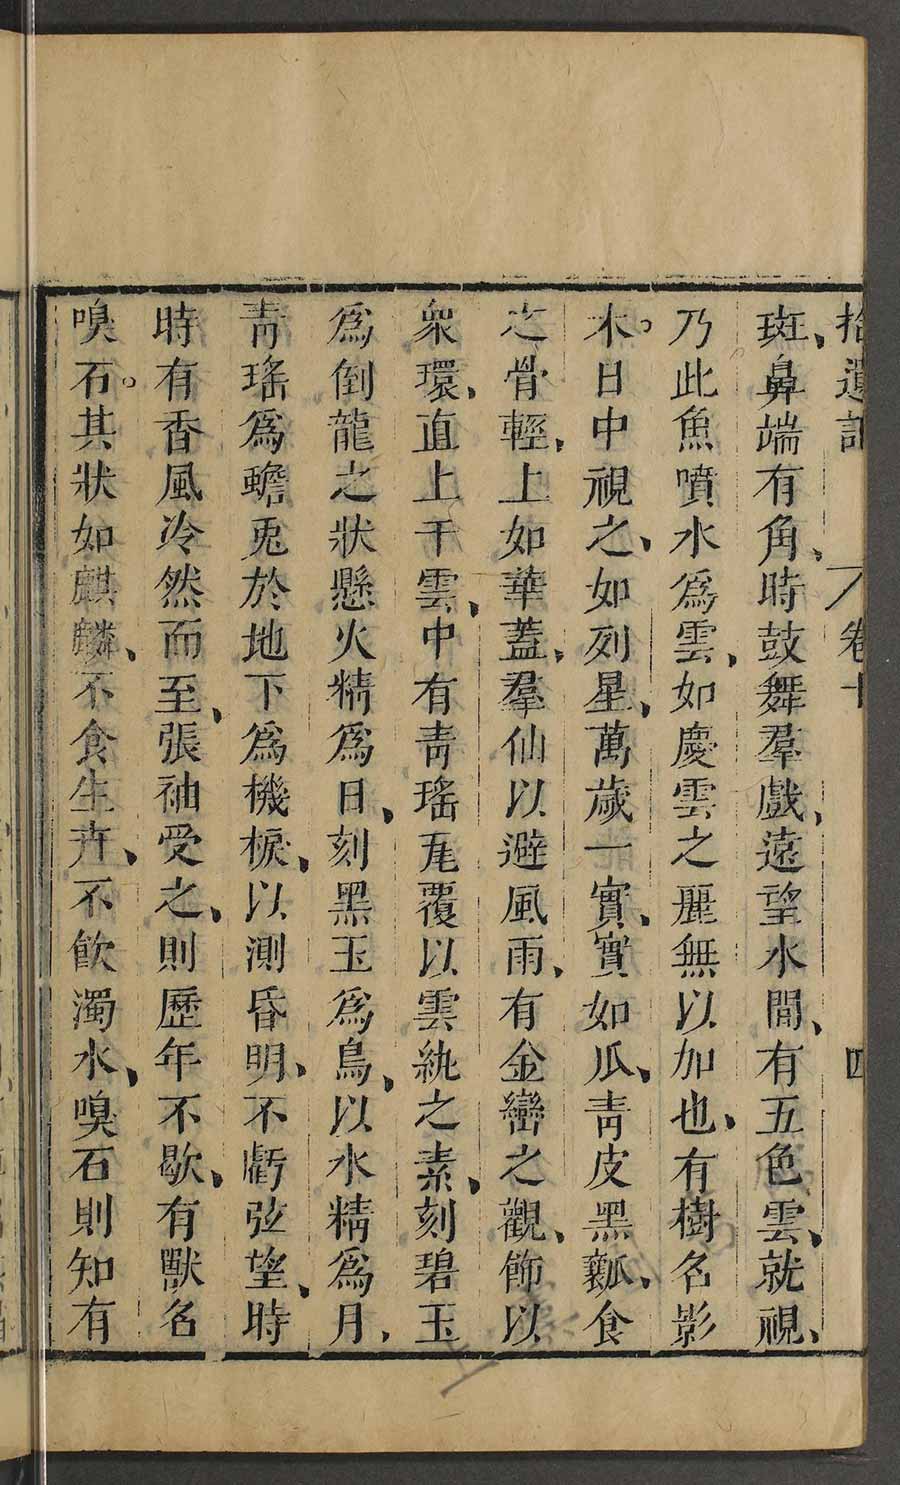 拾遺記 卷十 四
斑、鼻端有角、時鼓舞羣戲、遠望水間、有五色雲、就視、
乃此魚噴水爲雲、如慶雲之麗無以加也、有樹名影
木。日中視之、如列星、萬歲一實、實如瓜、青皮黑瓤、食
之骨輕、上如華蓋、羣仙以避風雨、有金巒之觀、飾以
衆環、直上干雲、中有青瑤瓦覆以雲紈之素、刻碧玉
爲倒龍之狀懸火精爲日、刻黑玉爲烏、以水精爲月、
青瑤爲蟾兎於地下爲機棙、以測昏明、不虧弦望、時
時有香風冷然而至、張袖受之、則歷年不歇、有獸名
嗅石。其狀如麒麟、不食生卉、不飲濁水、嗅石則知有